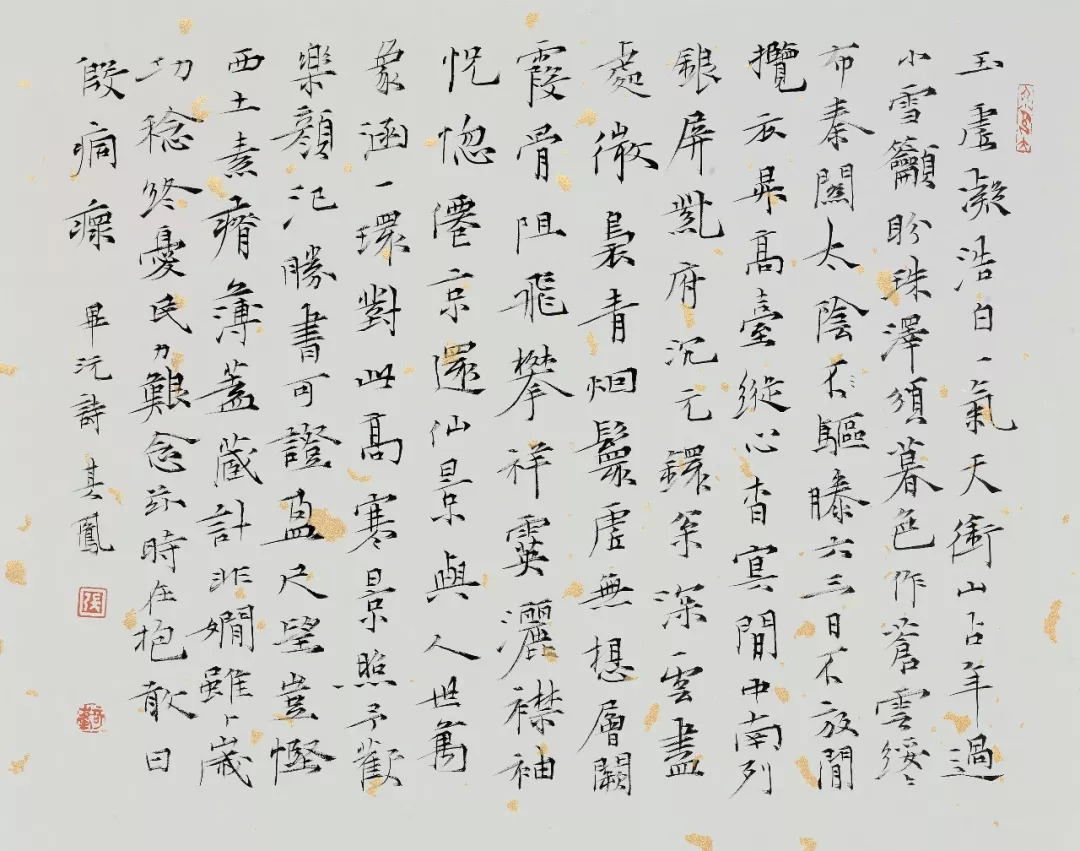 玉虛凝浩白一氣天衝山占年過
小雪籲盼珠澤須暮色作蒼雲綏〻
布秦關太陰不驅滕六三日不放閒
攬衣昇高臺縱心杳冥間中南列
銀屏紫府沉元鐶深雲盡
處微裊青烟鬟虛無想層闕
霞骨阻飛攀祥霙灑襟袖
恍惚僊京還仙景與人世萬
象涵一環對此高寒景照予歡
樂顏氾勝書可證盈尺望豈慳
西土素瘠薄蓋藏計非嫺雖卜歲
功稔終憂民力艱念茲時在抱敢曰
殷痌瘝 畢沅詩 其鳳
張